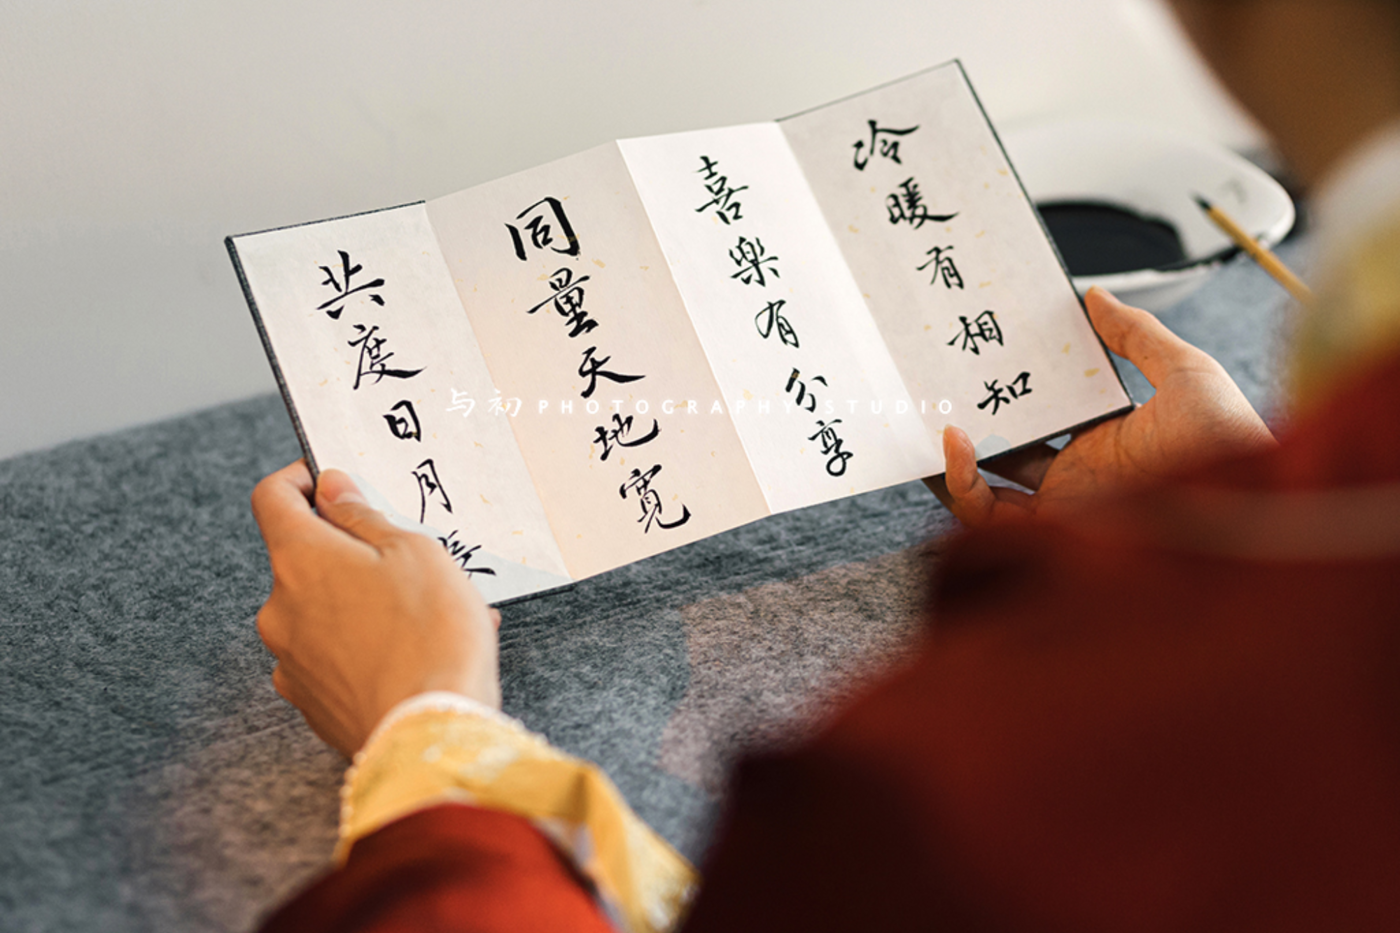 冷暖有相知
喜樂有分享
同量天地寬
共度日月長
与初 PHOTOGRAPHY STUDIO